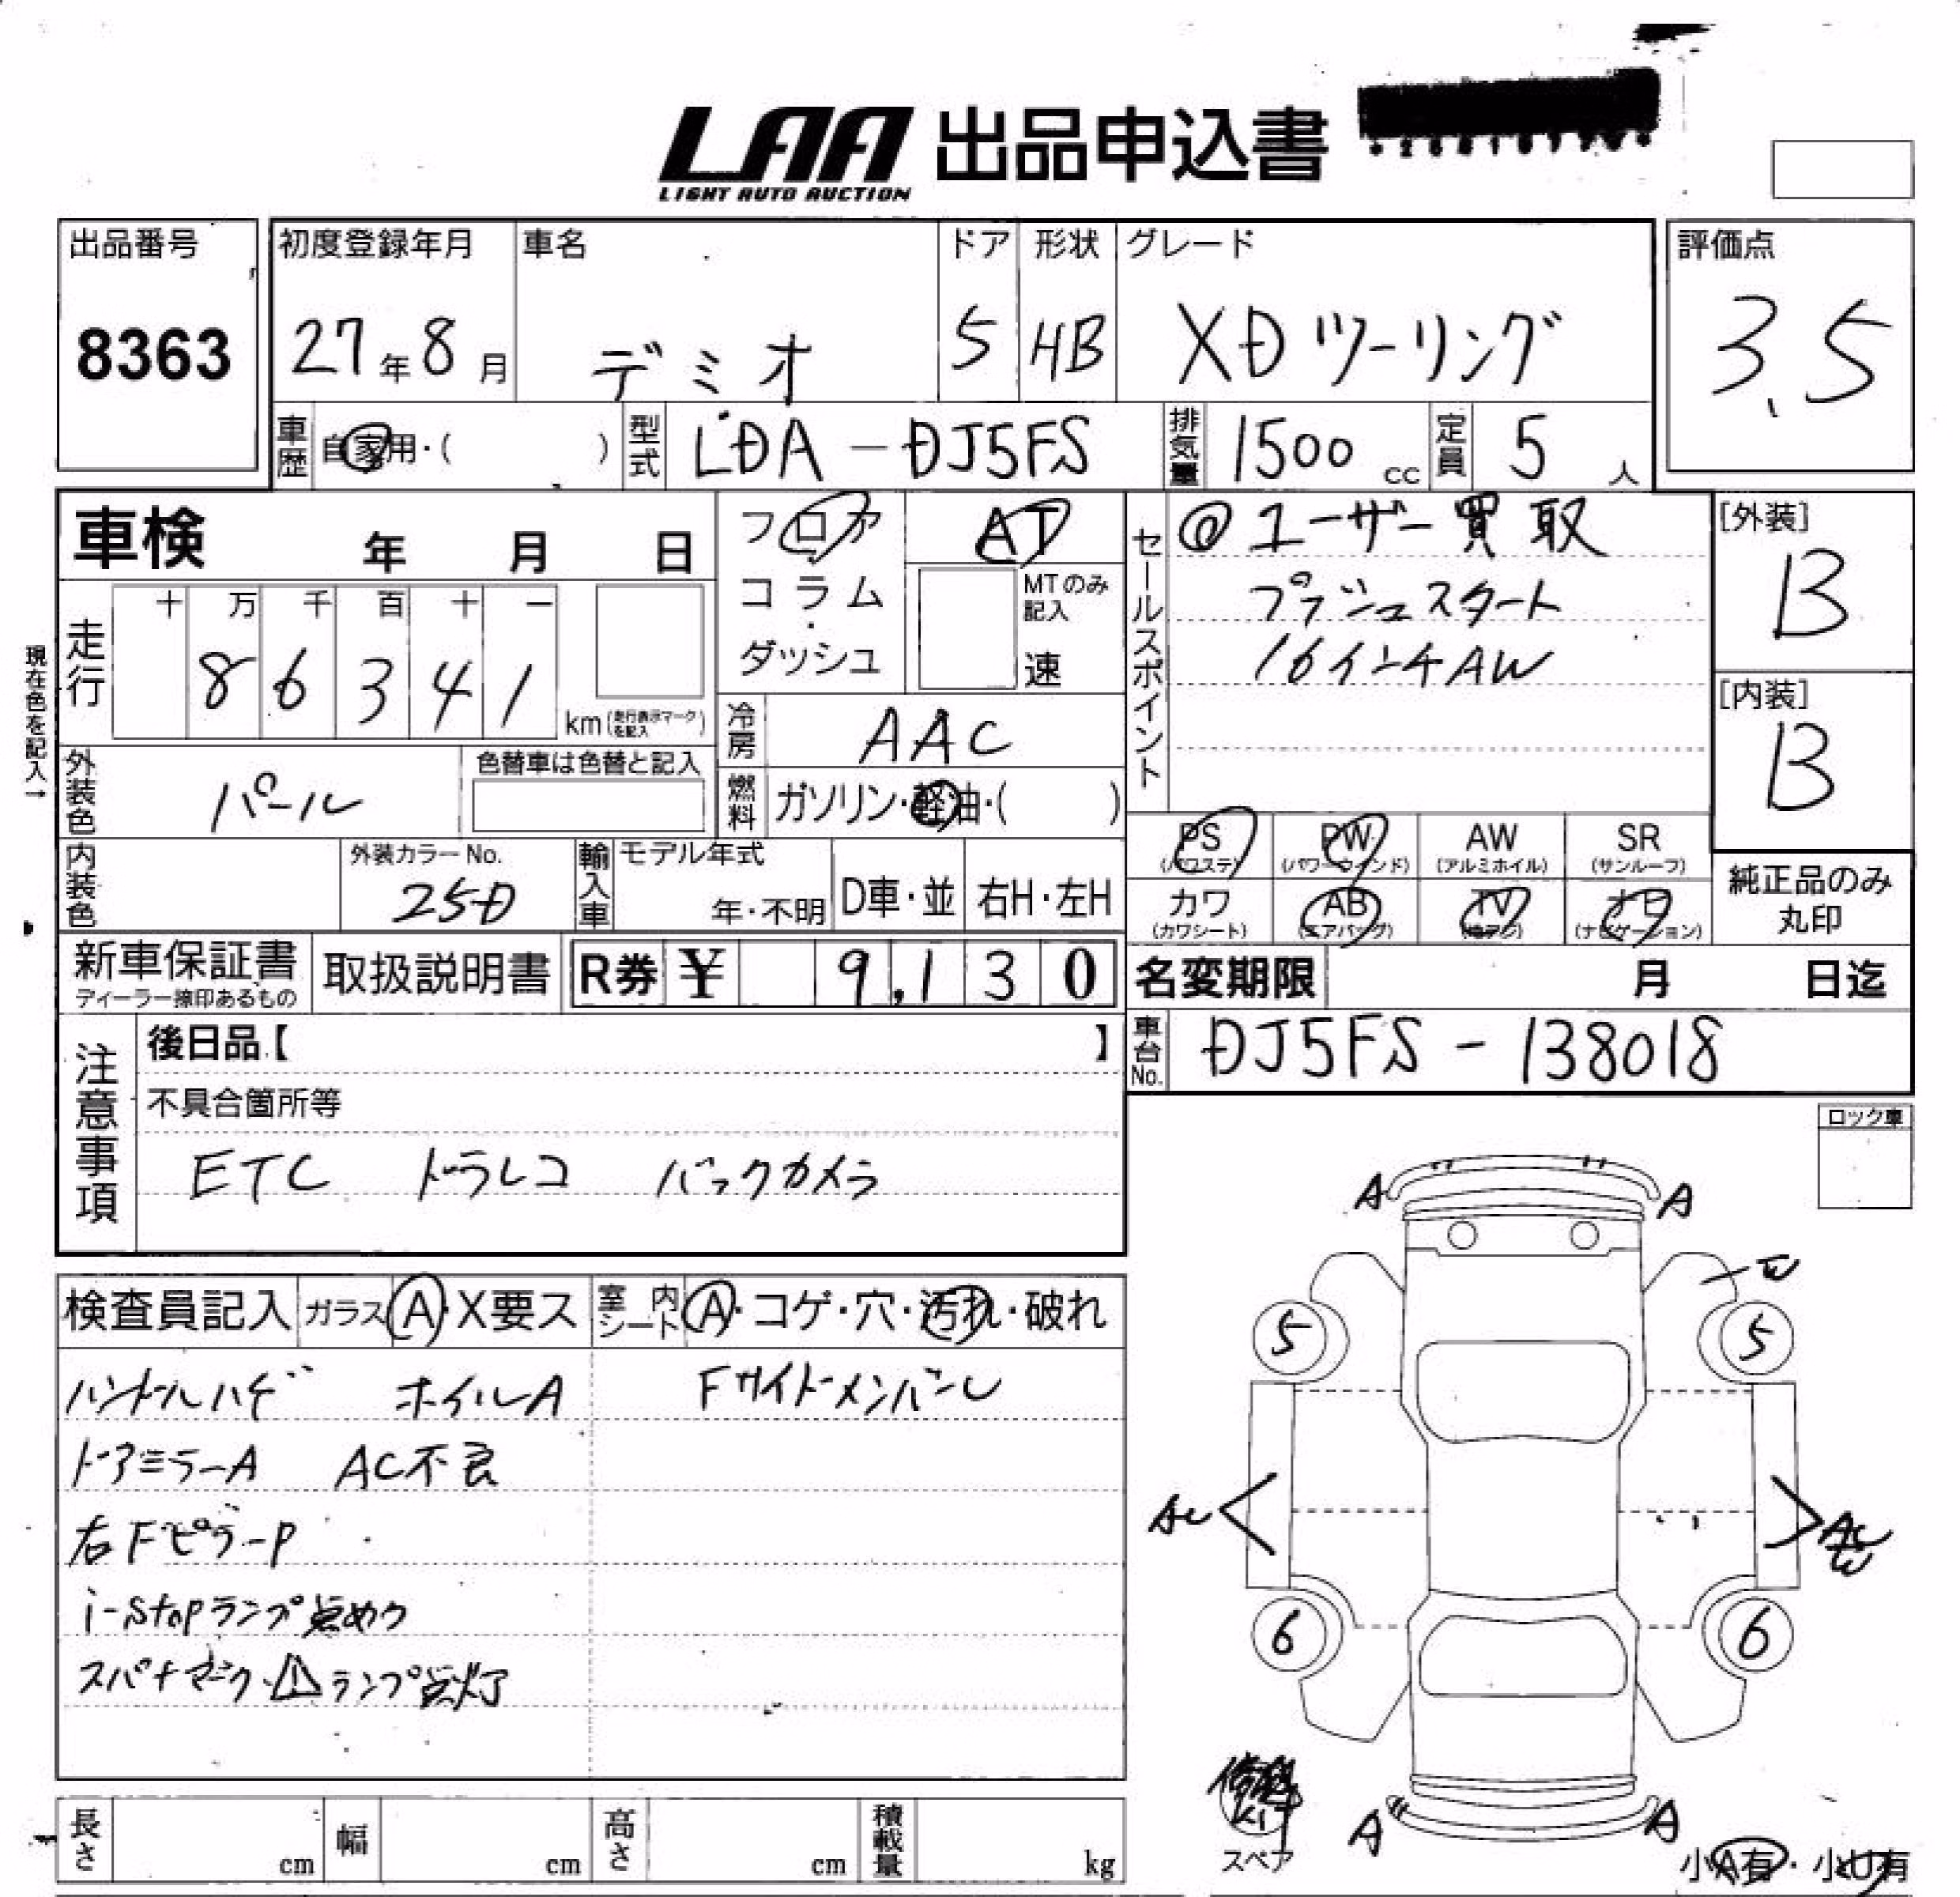 LAA 出品申込書
LIGHT AUTO AUCTION
出品番号 初度登録年月 車名 ドア 形状 グレード 評価点
8363 27年8月 デミオ 5 HB XDツーリング 3.5
車歴 自家用・( ) 型式 LDA-DJ5FS 排気量 1500cc 定員 5人
車検 年 月 日
フロア AT
コラム・ダッシュ MTのみ記入 速
セールスポイント @ユーザー買取
プッシュスタート
16インチAW
[外装] B
[内装] B
現在色を記入→
走行 十 万 千 百 十 一
8 6 3 4 1 km(走行表示マークを記入)
冷房 AAC
外装色 パール 色替車は色替と記入
燃料 ガソリン・軽油・( )
内装色 外装カラーNo. 25D 輸入車 モデル年式 年・不明 D車・並 右H・左H
PS (パワステ) PW (パワーウインド) AW (アルミホイル) SR (サンルーフ)
カワ (カワシート) AB (エアバッグ) TV ナビ (ナビゲーション)
純正品のみ丸印
新車保証書 ディーラー捺印あるもの 取扱説明書 R券 ¥ 9,130
名変期限 月 日迄
車台No. DJ5FS-138018
注意事項 後日品【 】
不具合箇所等
ETC ドラレコ バックカメラ
ロック車
検査員記入 ガラス A・X要ス 室内シート A・コゲ・穴・汚れ・破れ
ハンドルハゲ ホイルA Fサイドメンバーし
ドアミラーA AC不良
右FピラーP
i-stopランプ点めつ
スパナマーク・⚠ランプ点灯
A A
W
5 5
AC
6 6
KIT
スペア
A A
小A有・小U有
長さ cm 幅 cm 高さ cm 積載量 kg